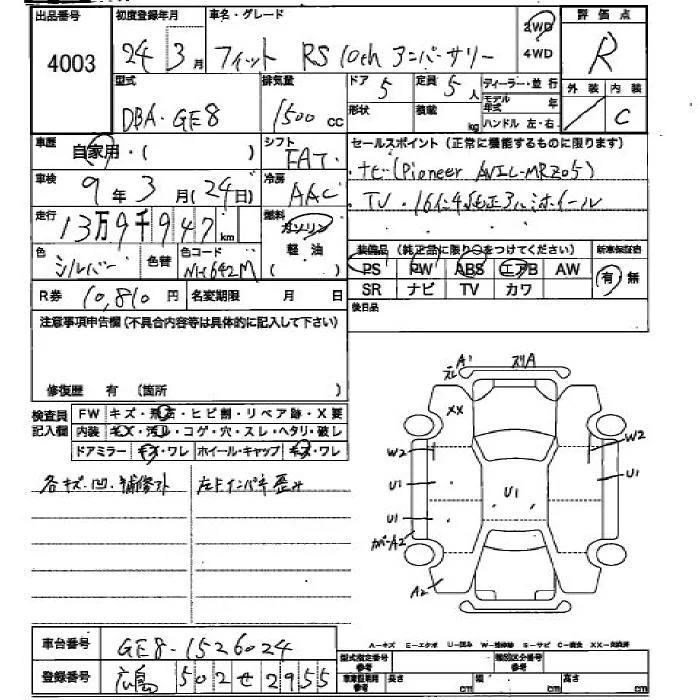 出品番号 初度登録年月 車名・グレード 評価点
4003 24年3月 フィット RS 10th アニバーサリー 2WD 4WD R
型式 排気量 ドア 定員 ディーラー・並行 外装 内装
DBA・GE8 1500cc 5 5人 モデル年式 年 C
形状 積載 kg ハンドル 左・右
車歴 自家用・( ) シフト FAT セールスポイント(正常に機能するものに限ります)
車検 9年3月(24日) 冷房 AAC ・ナビ(Pioneer AVIC-MRZ05)
・TV ・16インチ純正アルミホイール
走行 13万9千947km 燃料 ガソリン 軽油
装備品(純正品に限り○をつけてください) 新車保証書
色 シルバー 色替 色コード NH642M PS PW ABS エアB AW 有 無
R券 10,810円 名変期限 月 日 SR ナビ TV カワ
注意事項申告欄(不具合内容等は具体的に記入して下さい) 後日品
修復歴 有 (箇所 )
検査員記入欄 FW キズ・飛石・ヒビ割・リペア跡・X要
内装 キズ・汚れ・コゲ・穴・スレ・ヘタリ・破レ
ドアミラー キズ・ワレ ホイール・キャップ キズ・ワレ
各キズ・凹・補修アト
A' ズリA
XX
W2 W2
U1 U1 U1
U1
カバーA2
A2
車台番号 GE8-1526024
A-キズ E-エクボ U-凹み W-補修跡 S-サビ C-腐食 XX-交換済
登録番号 広島 502 せ 2955
型式指定番号 参考 類別区分番号 参考
車庫証明用 参考 長さ cm 幅 cm 高さ cm